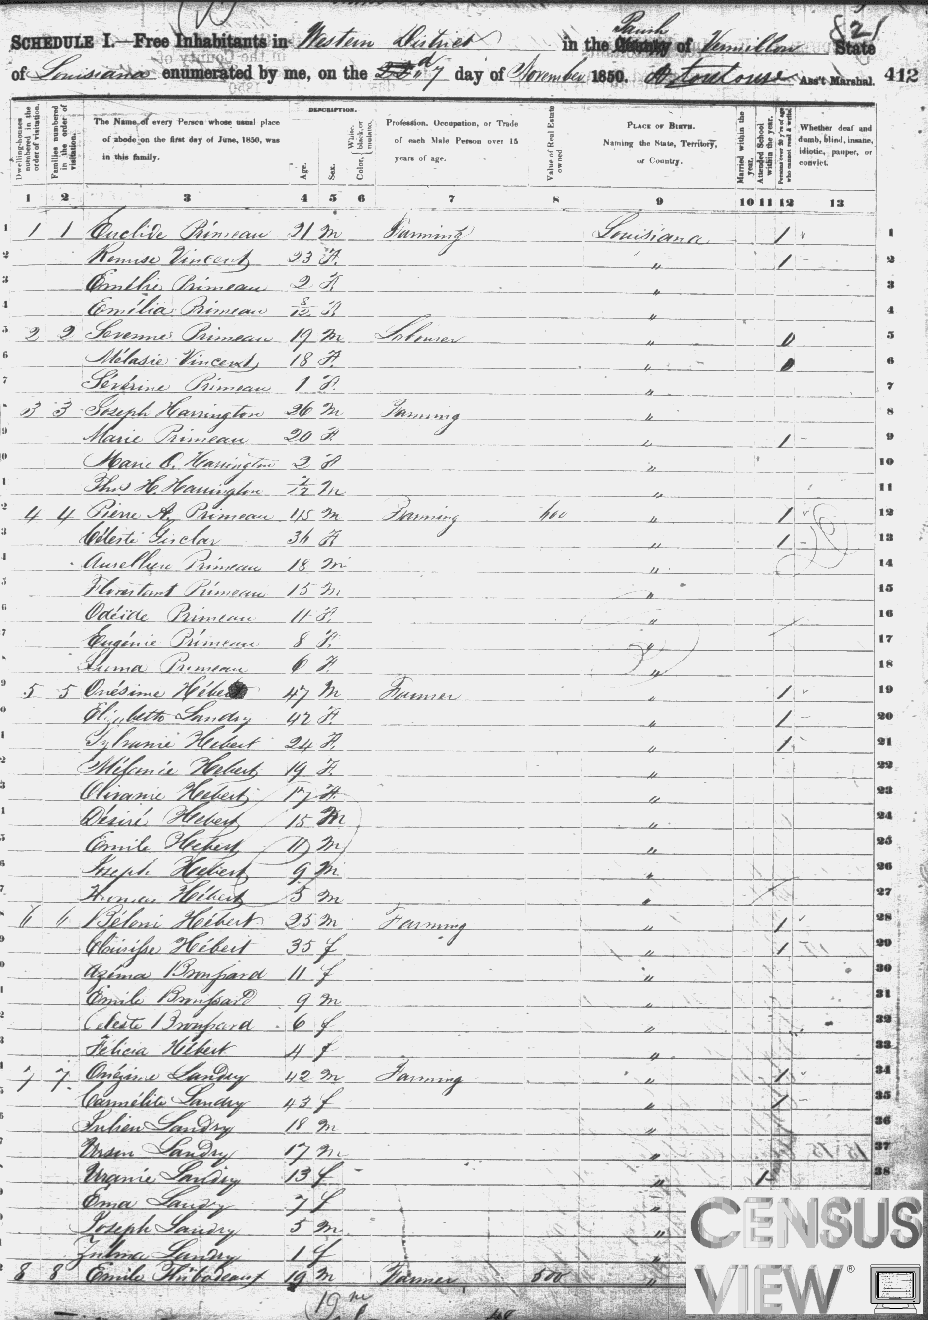 821
SCHEDULE I.—Free Inhabitants in Western District in the Parish County of Vermillon State
of Louisiana enumerated by me, on the 7 day of November 1850. Ass't Marshal. 412
DESCRIPTION.
Dwelling-houses numbered in the order of visitation.
Families numbered in the order of visitation.
The Name of every Person whose usual place of abode on the first day of June, 1850, was in this family.
Age.
Sex.
Color, White, black, or mulatto.
Profession, Occupation, or Trade of each Male Person over 15 years of age.
Value of Real Estate owned
PLACE OF BIRTH. Naming the State, Territory, or Country.
Married within the year.
Attended School within the year.
Persons over 20 y'rs of age who cannot read & write.
Whether deaf and dumb, blind, insane, idiotic, pauper, or convict.
1 2 3 4 5 6 7 8 9 10 11 12 13
1 1 1 Euclide Primeau 21 m Farming Louisiana 1 1
2 Vincent 23 F. " 1 2
3 Emélie Primeau 2 F. " 3
4 Emélia Primeau 8/12 F. " 4
5 2 2 Primeau 19 m Laborer " 5
6 Mélasie Vincent 18 F. " 6
7 Sévérine Primeau 1 F. " 7
3 3 Joseph Harrington 26 m Farming " 8
9 Marie Primeau 20 F. " 1 9
Marie O. Harrington 2 F " 10
H. Harrington 2/12 m " 11
4 4 Pierre Primeau 45 m Farming 600 " 1 12
Céleste 36 F. " 1 13
Aurellien Primeau 18 m " 14
Florestant Primeau 15 m " 15
Odéide Primeau 11 F. " 16
Eugénie Primeau 8 F. " 17
Primeau 6 F. " 18
5 5 Onésime Hébert 47 m Farmer " 1 19
Elizabeth Landry 42 F. " 1 20
Sylvanie Hebert 24 F. " 1 21
Mélanie Hebert 19 F. " 22
Olivanie Hebert 17 F. " 23
Désiré Hebert 15 m " 24
Emile Hebert 11 m " 25
Joseph Hebert 9 m " 26
Hébert 5 m " 27
6 6 Béloni Hébert 25 m Farming " 1 28
Hébert 35 f " 1 29
Azéma Broussard 11 f " 30
Emile Broussard 9 m " 31
Celeste Broussard 6 f " 32
Félicia Hébert 4 f " 33
7 7 Onézime Landry 42 m Farming " 1 34
Carmélite Landry 43 f " 1 35
Julien Landry 18 m " 36
Ursin Landry 17 m " 37
Uranie Landry 13 f " 1 38
Ema Landry 7 f "
Joseph Landry 5 m "
Zulma Landry 1 f "
8 8 Emile Thibodeaux 19 m Farmer 500 "
19 m
CENSUS
VIEW®